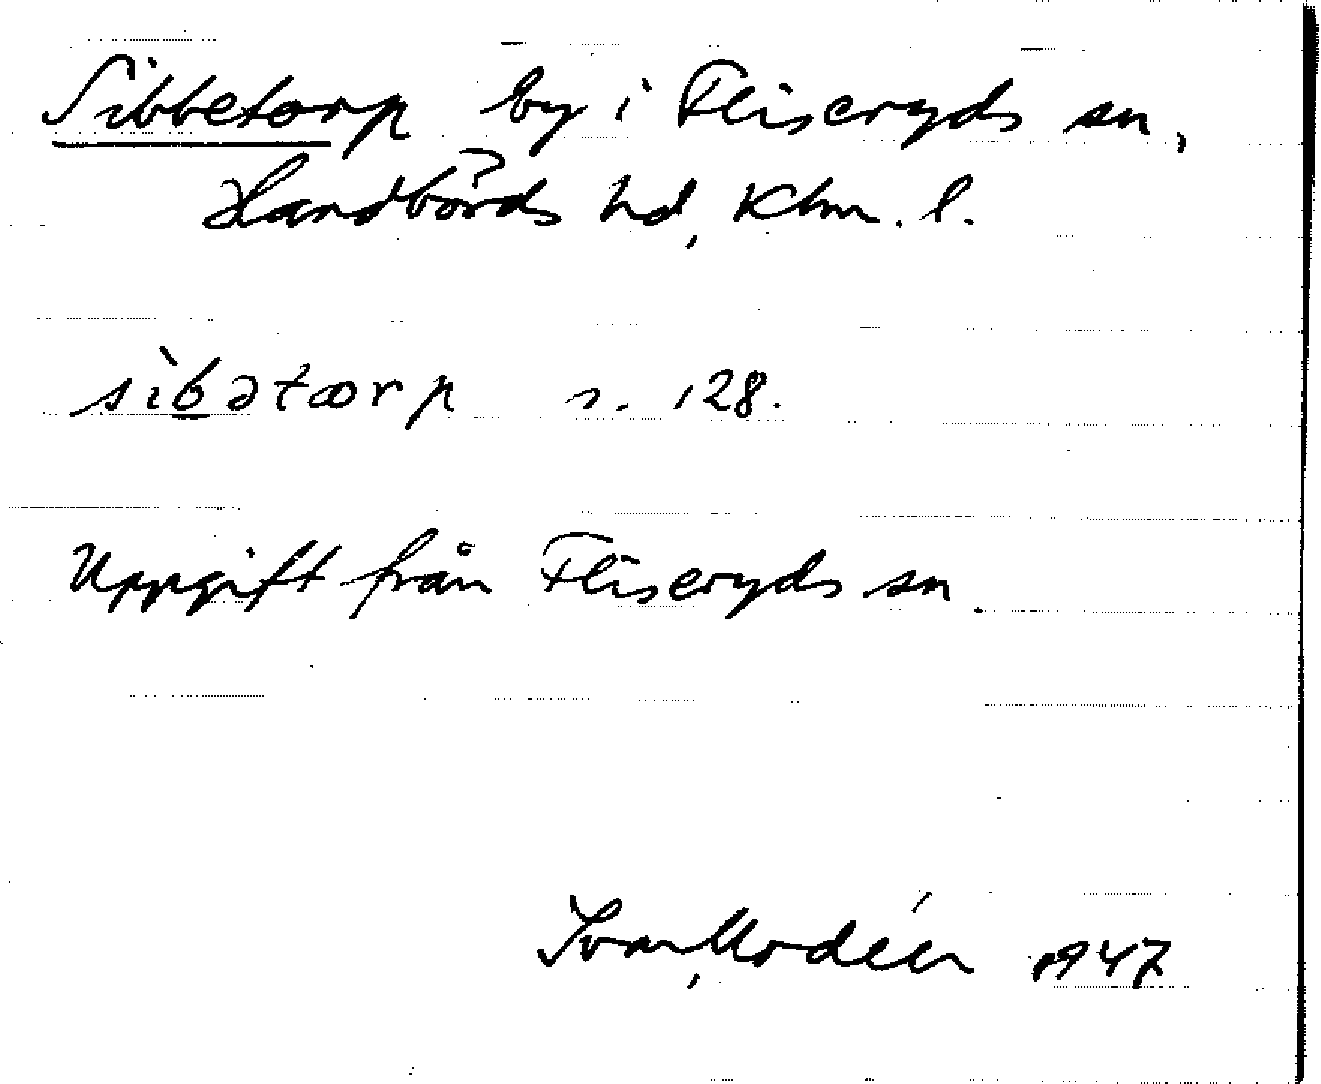 Sibbetorp by i Fliseryds sn,
Handbörds hd, Klm. l.
sìb̲ətærp s. 128.
Uppgift från Fliseryds sn.
Ivar Modéer 1947